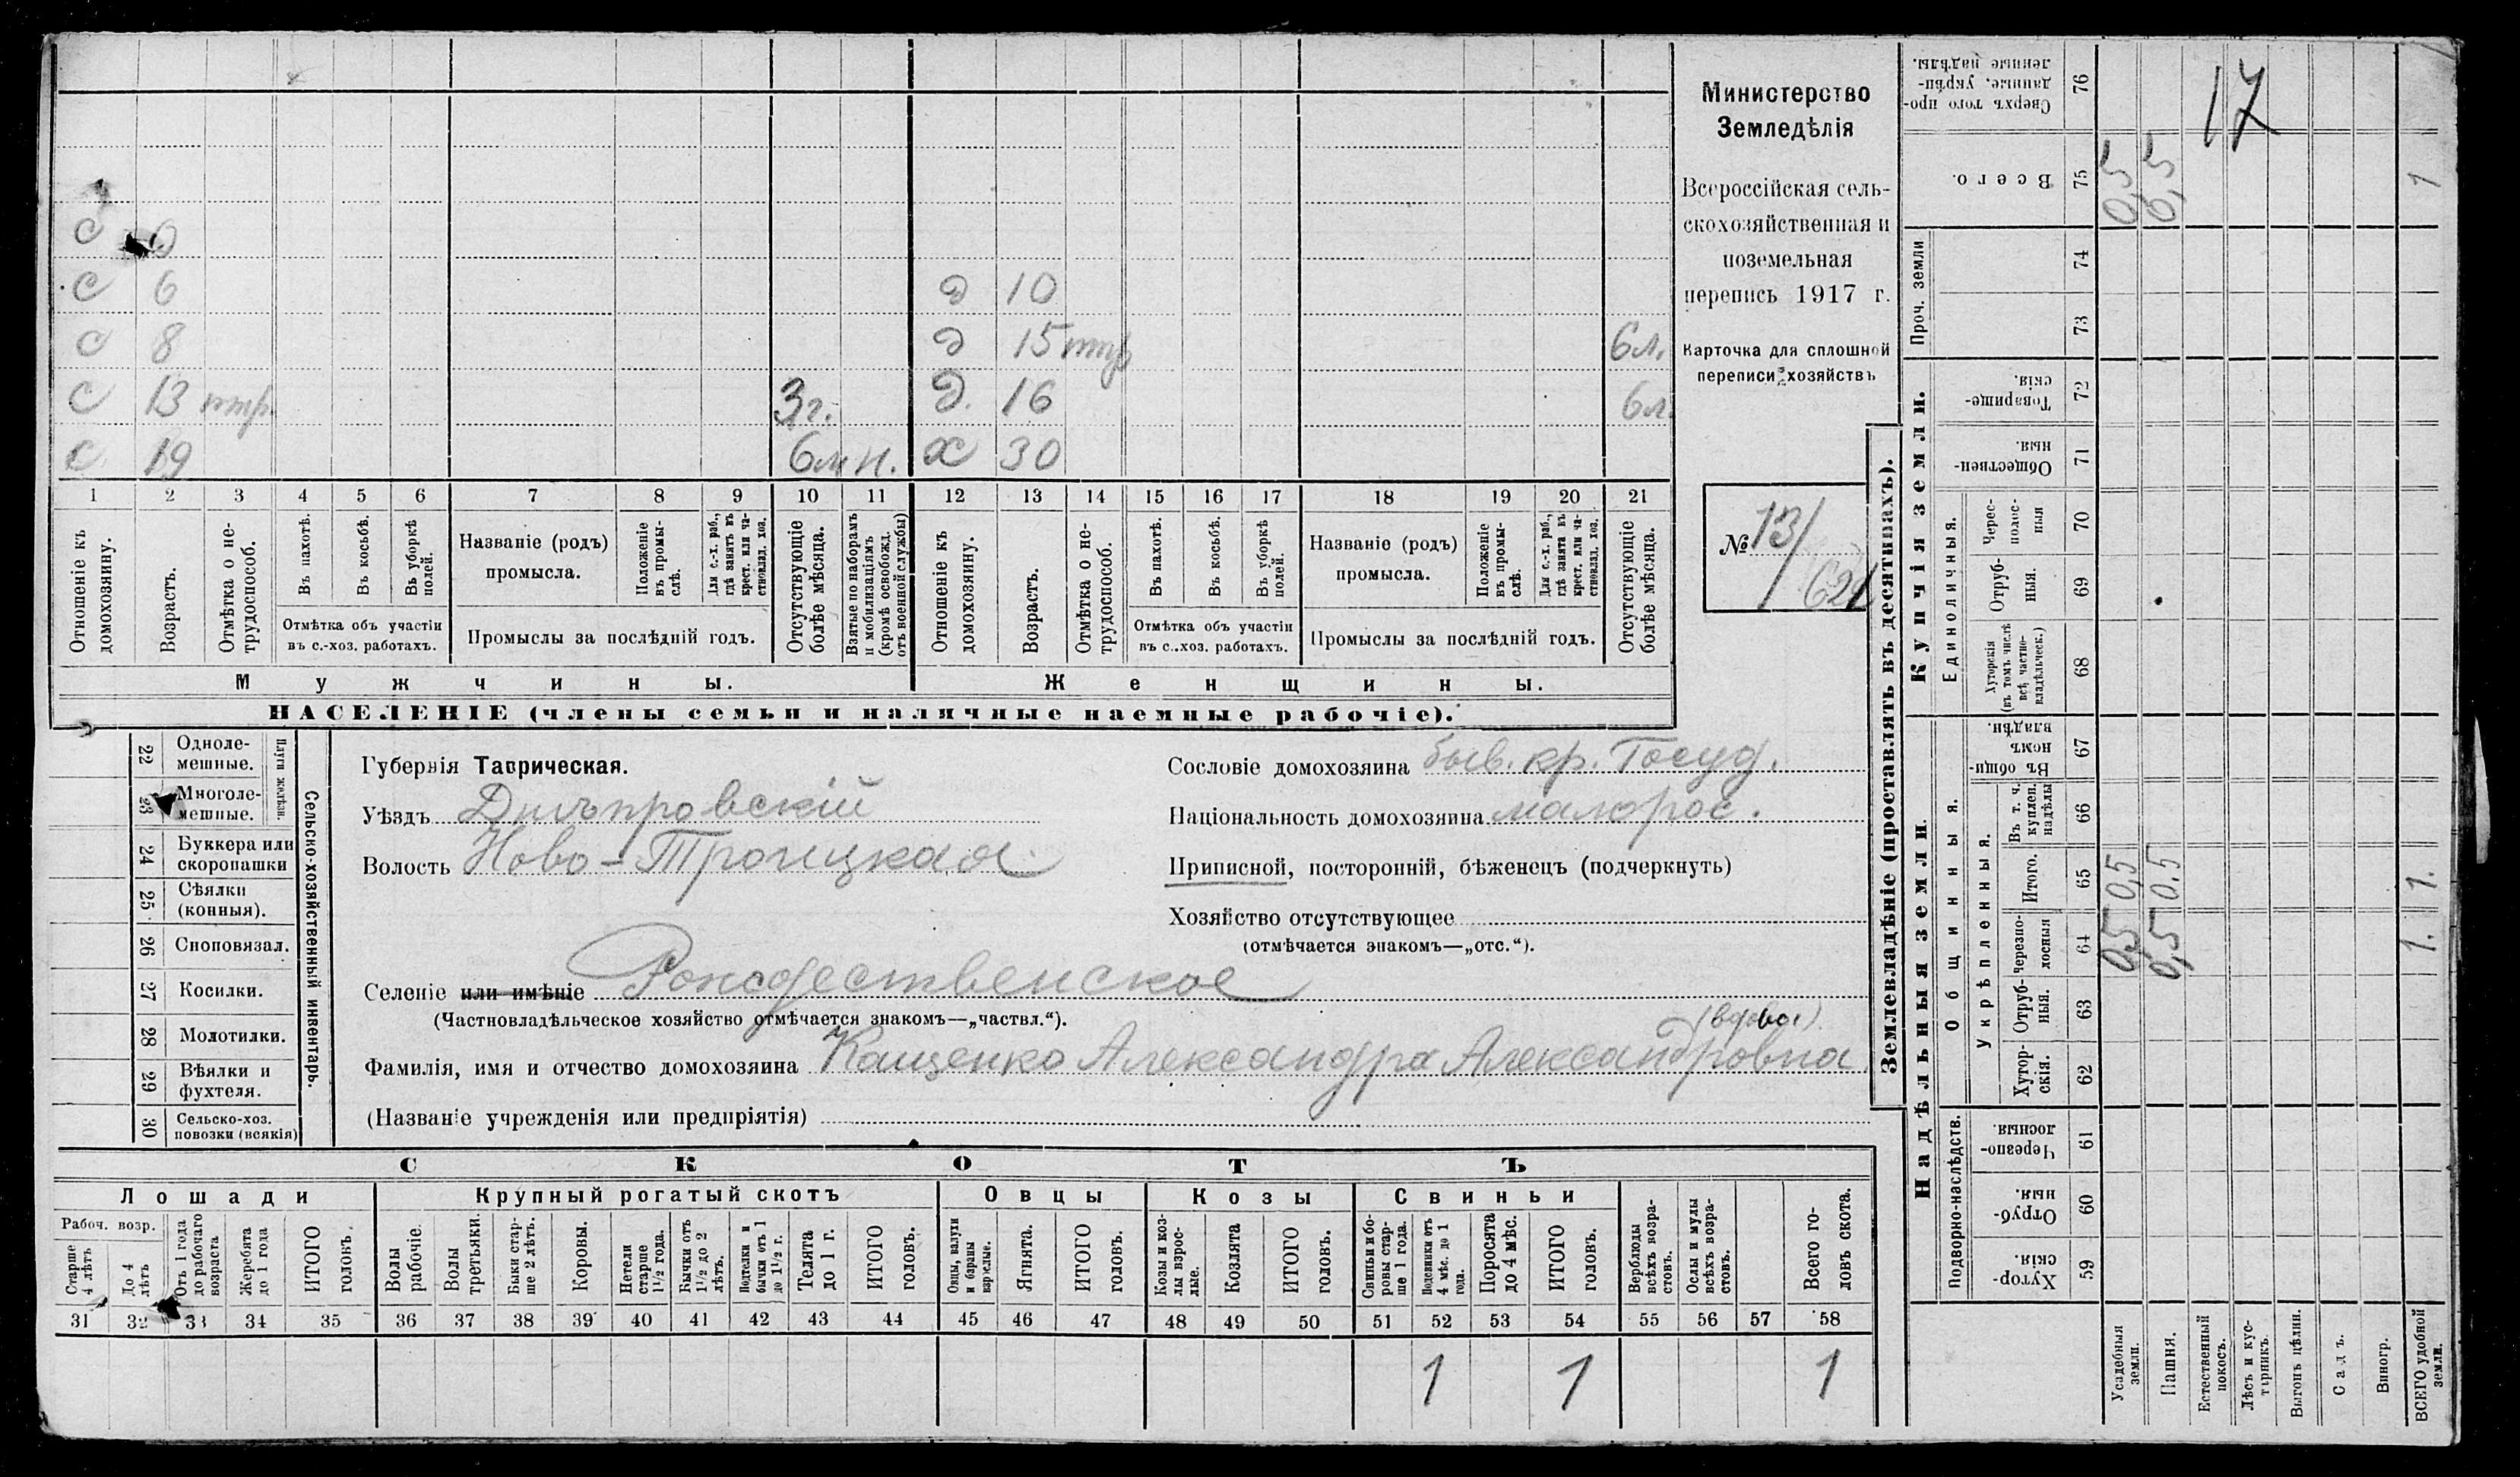 Министерство
Земледѣлія
Всероссійская сель-
скохозяйственная и
поземельная
перепись 1917 г.
Карточка для сплошной
переписи хозяйствъ
№ 13/
621
17
с
с 6
с 8
с 13 нтр.
3 г.
с 19
6 м
н.
д 10
д 15 нтр
6 л.
д. 16
6 л.
х 30
1 2 3 4 5 6 7 8 9 10 11 12 13 14 15 16 17 18 19 20 21
Отношеніе къ домохозяину.
Возрастъ.
Отмѣтка о не-трудоспособ.
Въ пахотѣ.
Въ косьбѣ.
Въ уборкѣ полей.
Отмѣтка объ участіи
въ с.-хоз. работахъ.
Названіе (родъ)
промысла.
Положеніе въ промы-слѣ.
Для с.-х. раб., гдѣ занятъ въ крест. или ча-стновлад. хоз.
Промыслы за послѣдній годъ.
Отсутствующіе болѣе мѣсяца.
Взятые по наборамъ и мобилизаціямъ (кромѣ освобожд. отъ военной службы)
Отношеніе къ домохозяину.
Возрастъ.
Отмѣтка о не-трудоспособ.
Въ пахотѣ.
Въ косьбѣ.
Въ уборкѣ полей.
Отмѣтка объ участіи
въ с.-хоз. работахъ.
Названіе (родъ)
промысла.
Положеніе въ промы-слѣ.
Для с.-х. раб., гдѣ занята въ крест. или ча-стновлад. хоз.
Промыслы за послѣдній годъ.
Отсутствующіе болѣе мѣсяца.
Мужчины.
Женщины.
НАСЕЛЕНІЕ (члены семьи и наличные наемные рабочіе).
Сельско-хозяйственный инвентарь.
Плуги желѣзн.
22 Одноле-мешные.
23 Многоле-мешные.
24 Буккера или скоропашки
25 Сѣялки (конныя).
26 Споповязал.
27 Косилки.
28 Молотилки.
29 Вѣялки и фухтеля.
30 Сельско-хоз. повозки (всякія)
Губернія Таврическая.
Уѣздъ Днѣпровскій
Волость Ново-Троицкая
Селеніе или имѣніе Рождественское
(Частновладѣльческое хозяйство отмѣчается знакомъ—„частвл.“).
(вдова)
Фамилія, имя и отчество домохозяина Кащенко Александра Александровна
(Названіе учрежденія или предпріятія)
Сословіе домохозяина быв. кр. Госуд.
Національность домохозяина малорос.
Приписной, посторонній, бѣженецъ (подчеркнуть)
Хозяйство отсутствующее
(отмѣчается знакомъ—„отс.“).
СКОТЪ
Лошади
Крупный рогатый скотъ
Овцы
Козы
Свиньи
Рабоч. возр.
Старше 4 лѣтъ
До 4 лѣтъ
Отъ 1 года до рабочаго возраста
Жеребята до 1 года
ИТОГО головъ.
Волы рабочіе.
Волы третьяки.
Быки стар-ше 2 лѣтъ.
Коровы.
Нетели старше 1½ года.
Бычки отъ 1½ до 2 лѣтъ.
Подтелки и бычки отъ 1 до 1½ г.
Телята до 1 г.
ИТОГО головъ.
Овцы, валухи и бараны взрослые.
Ягнята.
ИТОГО головъ.
Козы и коз-лы взрос-лые.
Козлята
ИТОГО головъ.
Свиньи и бо-ровы стар-ше 1 года.
Подсвинки отъ 4 мѣс. до 1 года.
Поросята до 4 мѣс.
ИТОГО головъ.
Верблюды всѣхъ возра-стовъ.
Ослы и мулы всѣхъ возра-стовъ.
Всего го-ловъ скота.
31 32 33 34 35 36 37 38 39 40 41 42 43 44 45 46 47 48 49 50 51 52 53 54 55 56 57 58
1 1 1
Землевладѣніе (проставлять въ десятинахъ).
Купчія земли.
Надѣльныя земли
Сверхъ того про-данные, укрѣп-ленные надѣлы. 76
Всего. 75
0,5 0,5 1
Проч. земли
74
73
Товарище-скія. 72
Обществен-ныя. 71
Единоличныя.
Черес-полос-ныя 70
Отруб-ныя. 69
Хуторскія (въ томъ числѣ всѣ частно-владѣльческ.) 68
Общинныя.
Въ общи-номъ владѣн. 67
Укрѣпленныя.
Въ т. ч. куплен. надѣлы 66
Итого. 65
0,5 0.5 1.
Черезпо-лосныя 64
0,5 0,5 1.
Отруб-ныя. 63
Хутор-скія. 62
Подворно-наслѣдств.
Черезпо-лосныя. 61
Отруб-ныя. 60
Хутор-скія. 59
Усадебныя земли.
Пашня.
Естественный покосъ.
Лѣсъ и кус-тарникъ.
Выгонъ цѣлин.
Садъ.
Виногр.
ВСЕГО удобной земли.